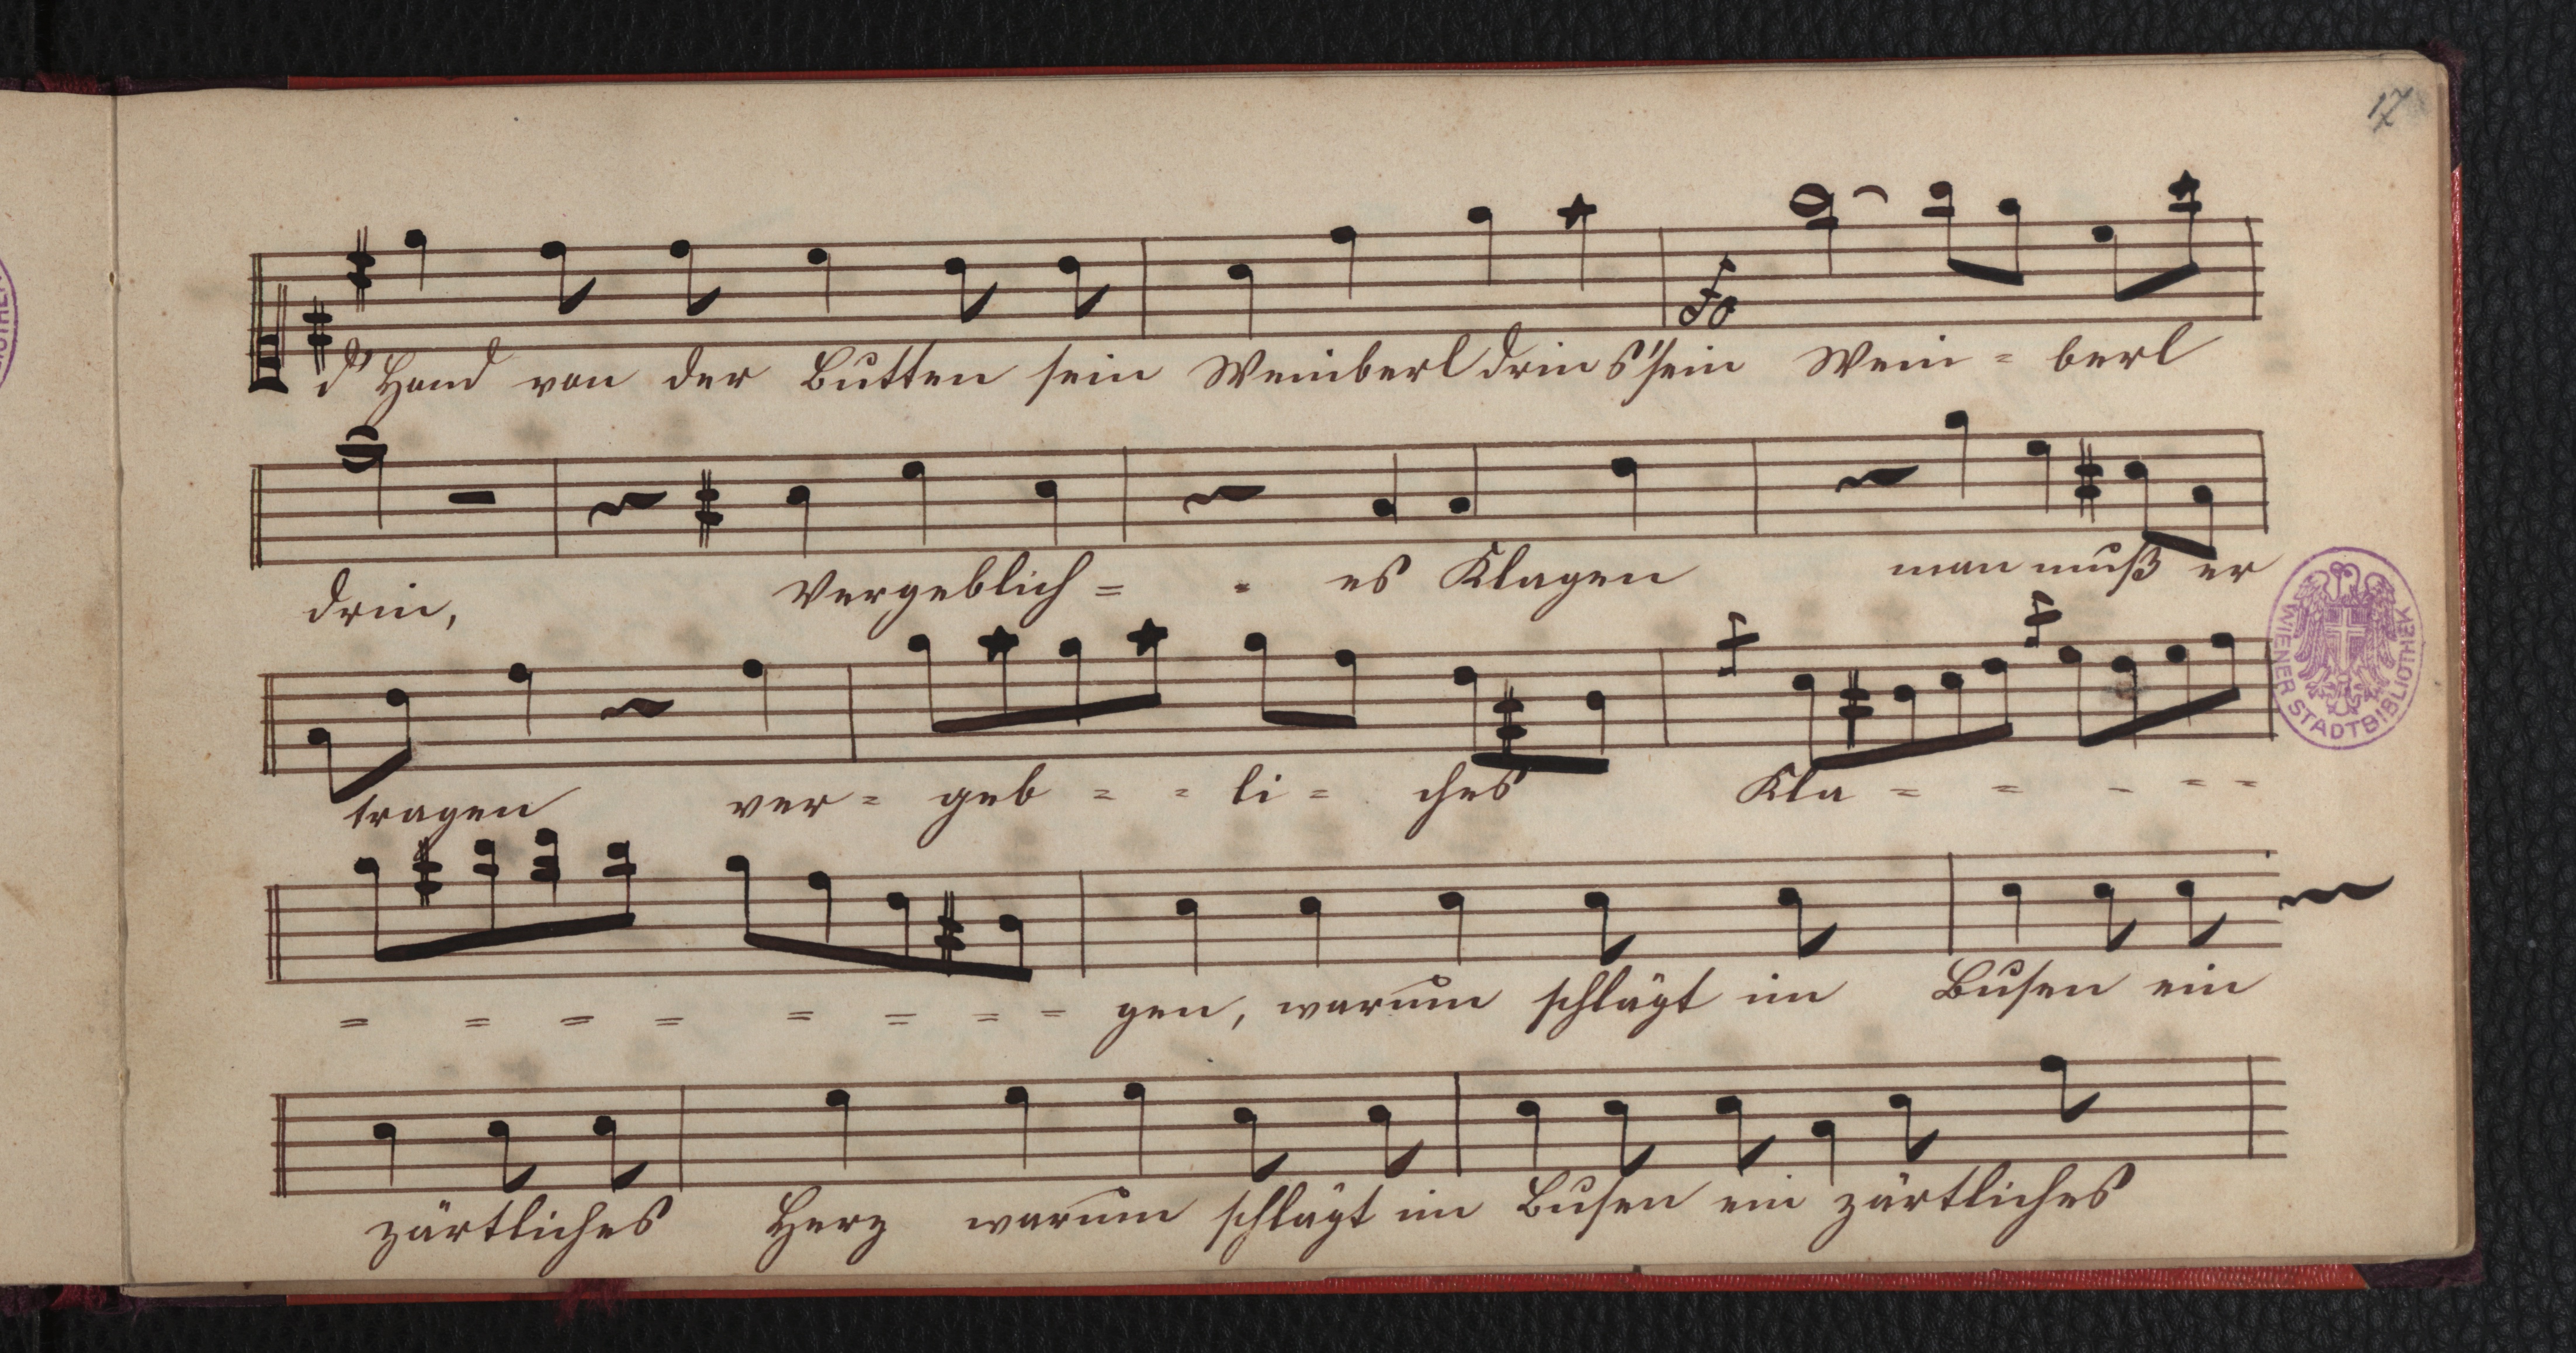 17
d' Hand von der Butten sein Weinberl drin s'sein Wein = berl
fo
drin, Vergeblich = = es Klagen man muß er
tragen ver = geb = = li = ches Kla = = - - -
= = = = = = = = gen, warum schlägt im Busen ein
zärtliches Herz warum schlägt im Busen ein zärtliches
WIENER STADTBIBLIOTHEK